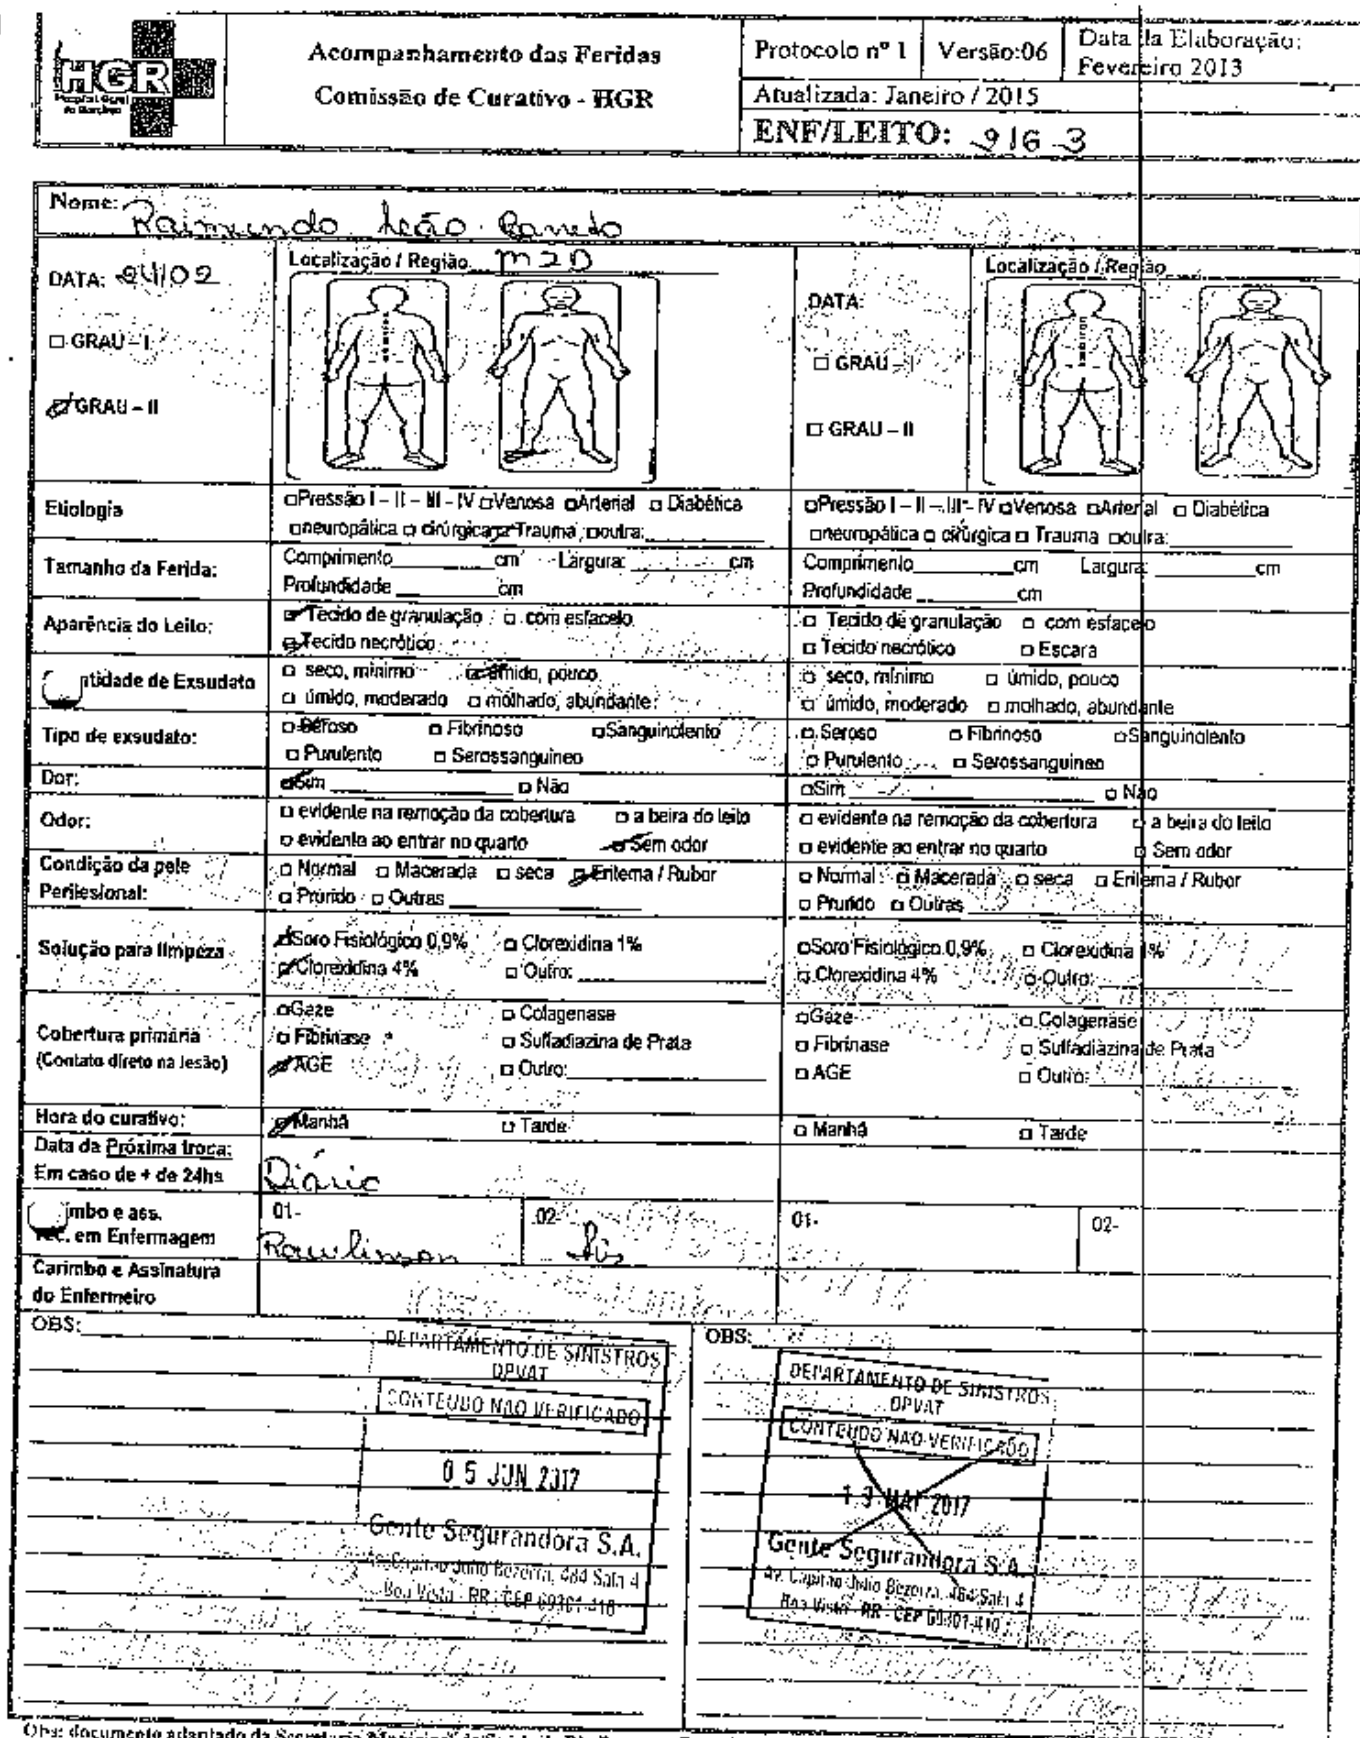 HGR
Hospital Geral
de Roraima
Acompanhamento das Feridas
Comissão de Curativo - HGR
Protocolo nº 1 Versão:06 Data da Elaboração:
Fevereiro 2013
Atualizada: Janeiro / 2015
ENF/LEITO: 916-3
Nome: Raimundo Leão
DATA: 04/02
Localização / Região
□ GRAU – I
GRAU – II
DATA:
Localização / Região
□ GRAU – I
□ GRAU – II
Etiologia
□Pressão I – II – III - IV □Venosa □Arterial □ Diabética
□neuropática □ cirúrgica □ Trauma □outra:
□Pressão I – II – III - IV □Venosa □Arterial □ Diabética
□neuropática □ cirúrgica □ Trauma □outra:
Tamanho da Ferida:
Comprimento________cm Largura: ________cm
Profundidade ________cm
Comprimento________cm Largura: ________cm
Profundidade ________cm
Aparência do Leito:
Tecido de granulação □ com esfacelo
Tecido necrótico
□ Tecido de granulação □ com esfacelo
□ Tecido necrótico □ Escara
ntidade de Exsudato
□ seco, mínimo □ úmido, pouco
□ úmido, moderado □ molhado, abundante:
□ seco, mínimo □ úmido, pouco
□ úmido, moderado □ molhado, abundante
Tipo de exsudato:
□ Seroso □ Fibrinoso □Sanguinolento
□ Purulento □ Serossanguineo
□ Seroso □ Fibrinoso □Sanguinolento
□ Purulento □ Serossanguineo
Dor:
Sim ________ □ Não
□Sim ________ □ Não
Odor:
□ evidente na remoção da cobertura □ a beira do leito
□ evidente ao entrar no quarto Sem odor
□ evidente na remoção da cobertura □ a beira do leito
□ evidente ao entrar no quarto □ Sem odor
Condição da pele
Perilesional:
□ Normal □ Macerada □ seca Eritema / Rubor
□ Prurido □ Outras ________
□ Normal □ Macerada □ seca □ Eritema / Rubor
□ Prurido □ Outras ________
Solução para limpeza
Soro Fisiológico 0,9% □ Clorexidina 1%
Clorexidina 4% □ Outro: ________
□Soro Fisiológico 0,9% □ Clorexidina 1%
□ Clorexidina 4% □ Outro: ________
Cobertura primária
(Contato direto na lesão)
□Gaze □ Colagenase
□ Fibrinase □ Sulfadiazina de Prata
AGE □ Outro:________
□Gaze □ Colagenase
□ Fibrinase □ Sulfadiazina de Prata
□ AGE □ Outro:________
Hora do curativo:
Manhã □ Tarde
□ Manhã □ Tarde
Data da Próxima troca:
Em caso de + de 24hs
Diário
imbo e ass.
Tec. em Enfermagem
01- Rawlinson 02-
01- 02-
Carimbo e Assinatura
do Enfermeiro
OBS:
DEPARTAMENTO DE SINISTROS
DPVAT
CONTEUDO NAO VERIFICADO
05 JUN 2017
Gente Segurandora S.A.
Av. Capitao Julio Bezerra, 484 Sala 4
Boa Vista - RR - CEP 69301-410
OBS:
DEPARTAMENTO DE SINISTROS
DPVAT
CONTEUDO NAO VERIFICADO
19 MAI 2017
Gente Segurandora S.A.
Av. Capitao Julio Bezerra, 484 Sala 4
Boa Vista - RR - CEP 69301-410
Obs: documento adaptado da Secretaria Municipal de Saúde